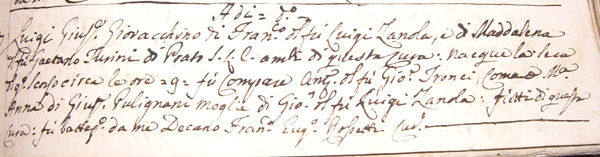 Adi = d.º
Luigi Gius.e Giovacchino di Fran.º del fù Luigi Zanola, e di Maddalena
del fù Gaetano Turini di Prato L.L.C. amb.i di questa Cura: nacque la sera
scorso circa le ore =9= fù Compare Cent.e del fù Gio: Tronci, Comare M.a
Anna di Gius.e Pulignani moglie di Gio: del fù Luigi Zanola: tutti di questa
Cura: fù battez.º da me Decano Fran.º Eug.º Rossetti Cur.